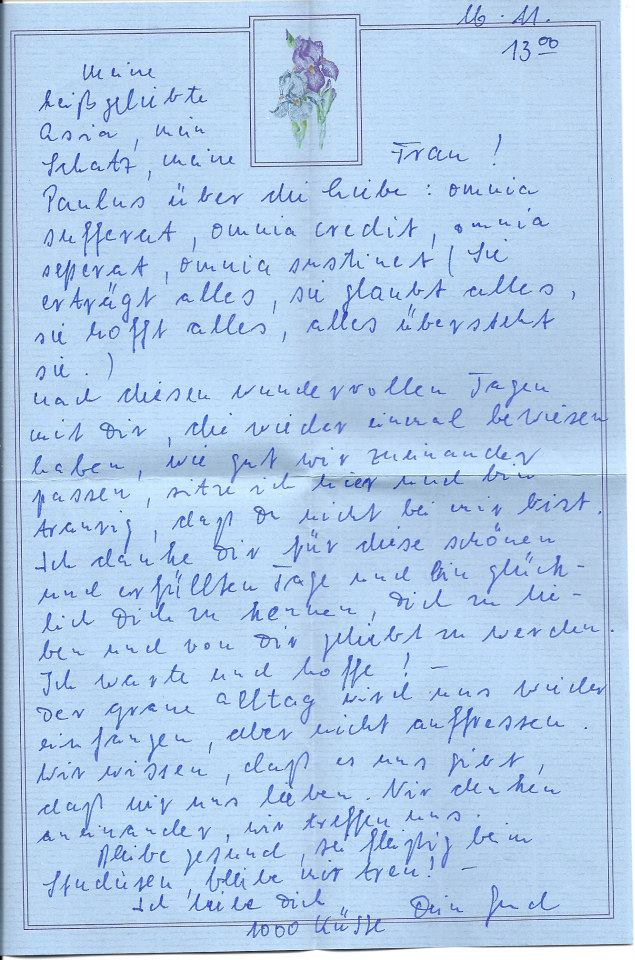 16.11.
13 00
Meine
heißgeliebte
Asia, mein
Schatz, meine Frau!
Paulus über die Liebe: omnia
sufferat, omnia credit, omnia
seperat, omnia sustinet (Sie
erträgt alles, sie glaubt alles,
sie hofft alles, alles übersteht
sie.)
Nach diesen wundervollen Tagen
mit Dir, die wieder einmal bewiesen
haben, wie gut wir zueinander
passen, sitze ich hier und bin
traurig, daß Du nicht bei mir bist.
Ich danke Dir für diese schönen
und erfüllten Tage und bin glück-
lich Dich zu kennen, Dich zu lie-
ben und von Dir geliebt zu werden.
Ich warte und hoffe! –
Der graue Alltag wird uns wieder
einfangen, aber nicht auffressen.
Wir wissen, daß es uns gibt,
daß wir uns lieben. Wir denken
aneinander, wir treffen uns.
Bleibe gesund, sei fleißig beim
Studieren, bleibe mir treu! –
Ich liebe Dich Dein
1000 Küsse